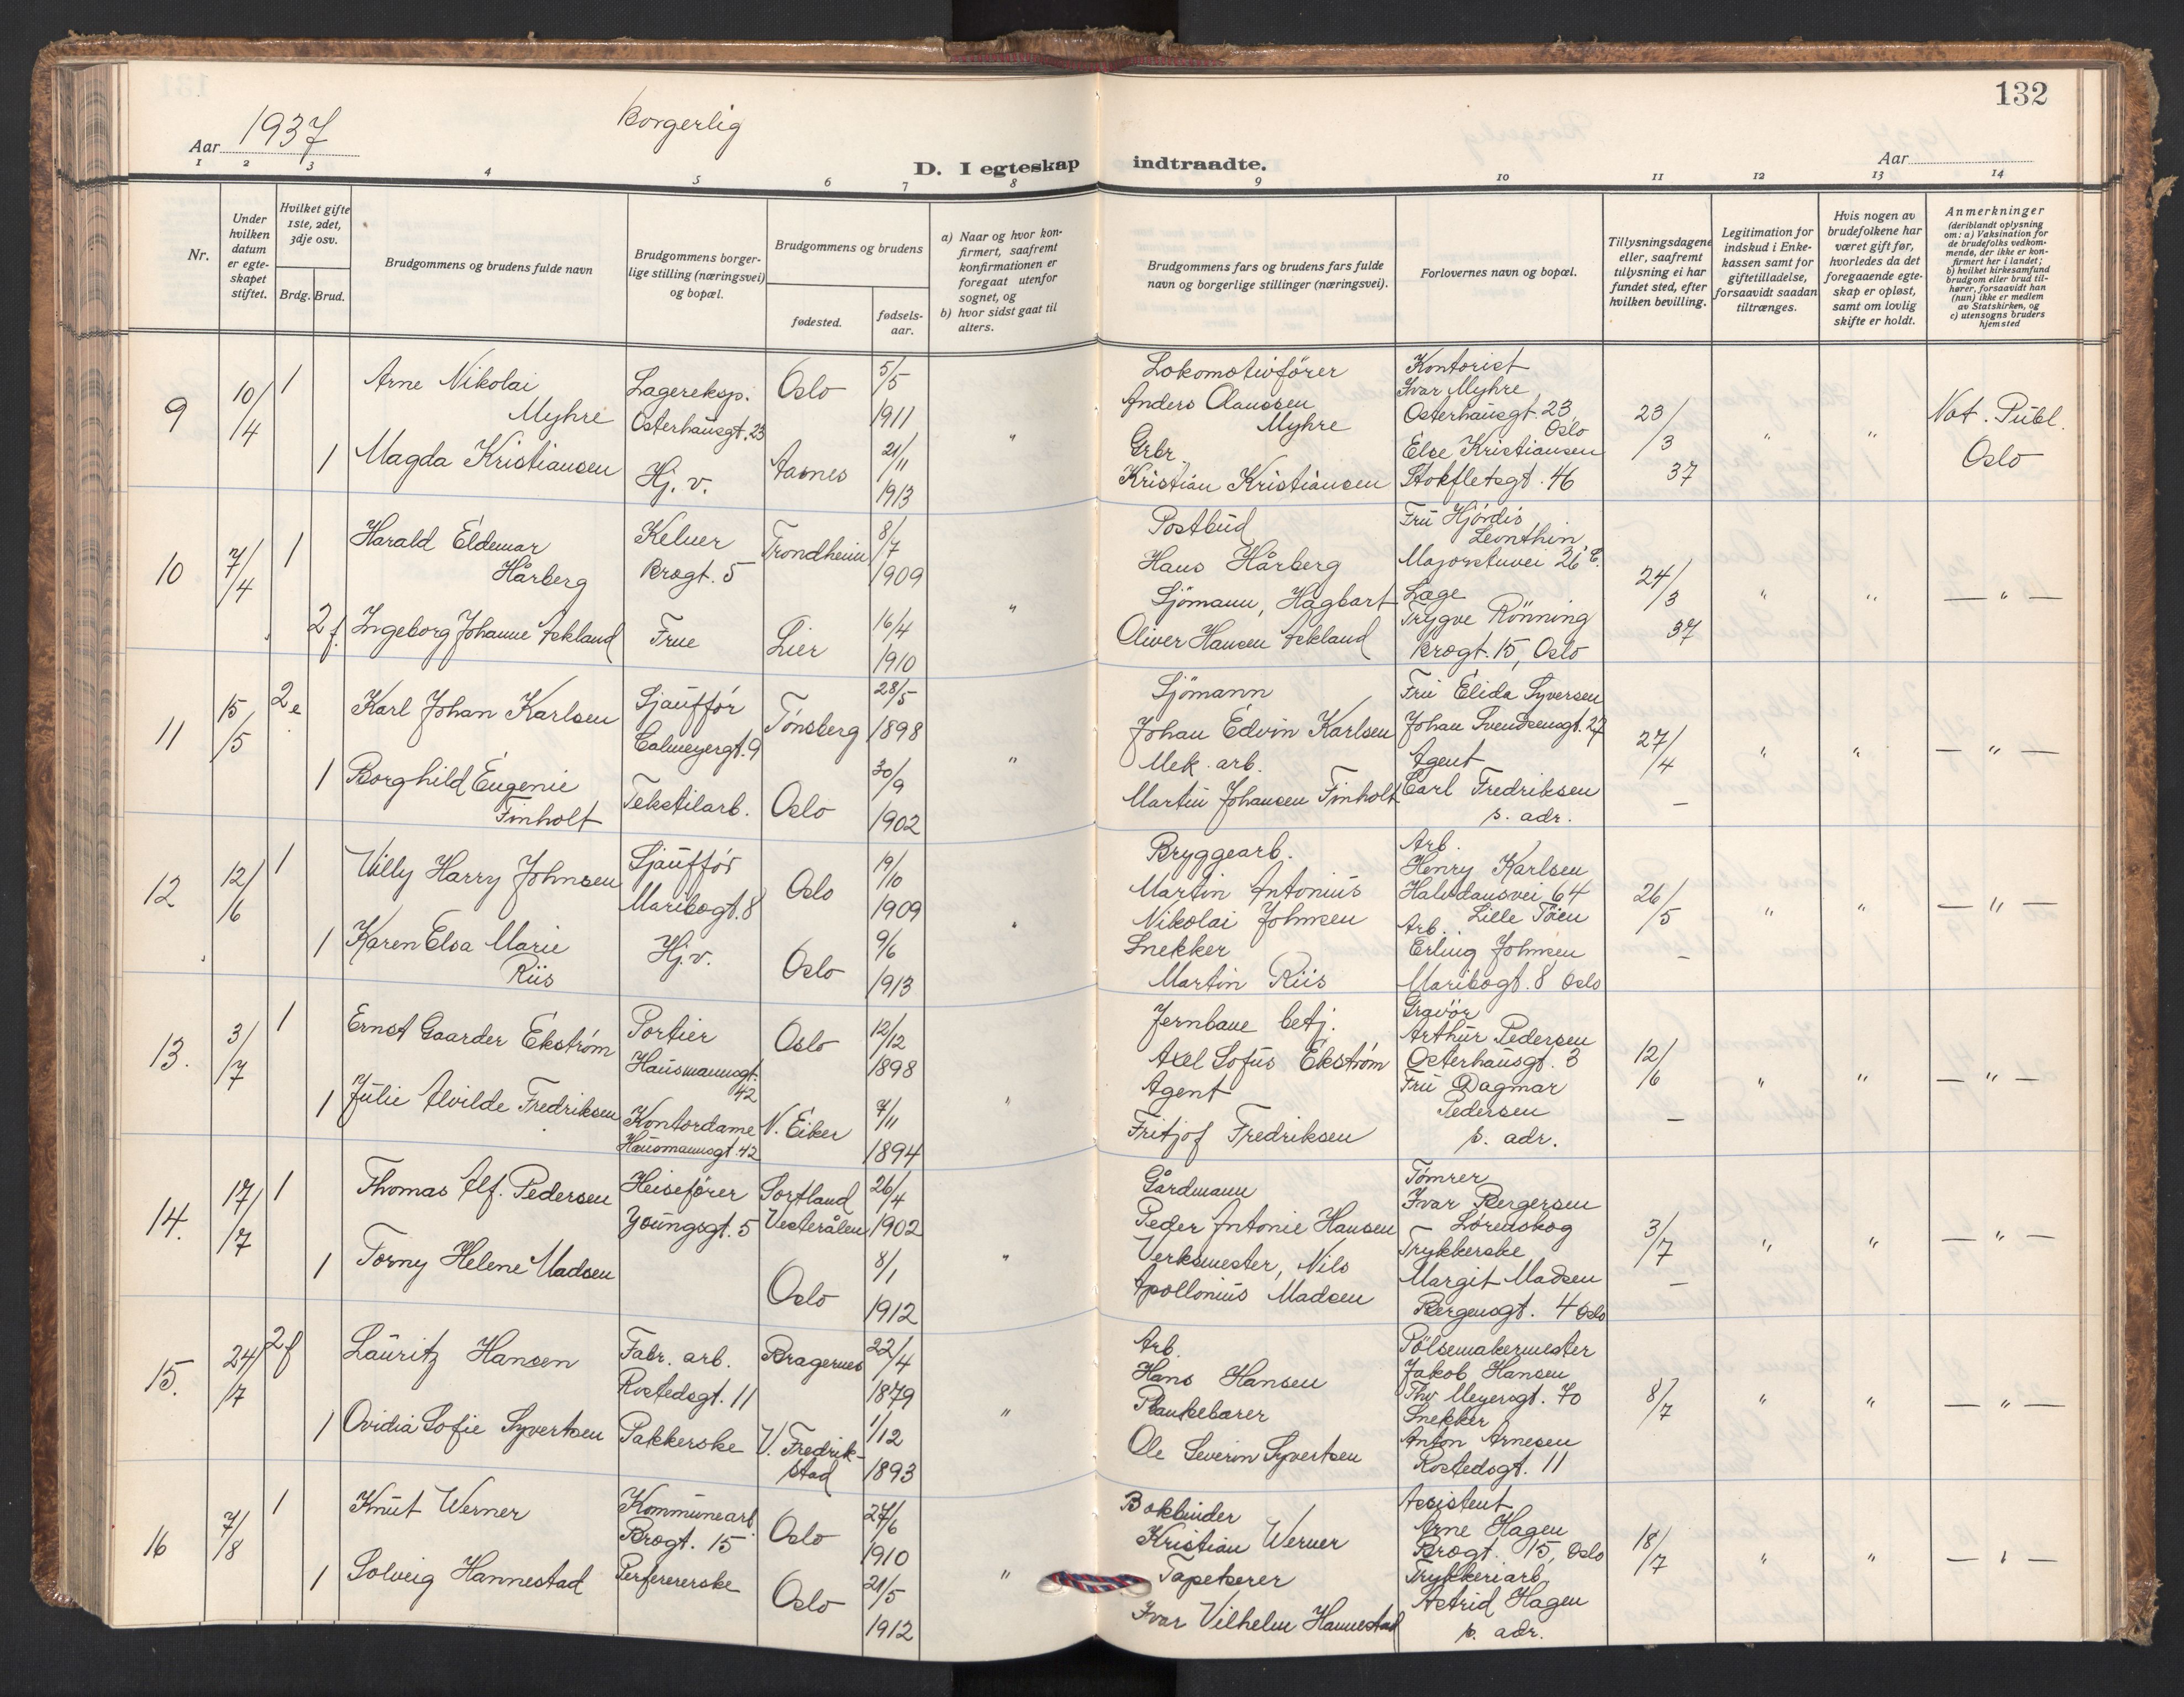 132
1937
Borgerlig
Aar
Aar
D. I egteskap indtraadte.
1 2 3 4 5 6 7 8 9 10 11 12 13 14
Nr.
Under hvilken datum er egteskapet stiftet.
Hvilket gifte 1ste, 2det, 3dje osv.
Brdg. Brud.
Brudgommens og brudens fulde navn
Brudgommens borgerlige stilling (næringsvei) og bopæl.
Brudgommens og brudens
fødested.
fødselsaar.
a) Naar og hvor konfirmert, saafremt konfirmationen er foregaat utenfor sognet, og
b) hvor sidst gaat til alters.
Brudgommens fars og brudens fars fulde navn og borgerlige stillinger (næringsvei).
Forlovernes navn og bopæl.
Tillysningsdagene eller, saafremt tilysning ei har fundet sted, efter hvilken bevilling.
Legitimation for indskud i Enkekassen samt for giftetilladelse, forsaavidt saadan tiltrænges.
Hvis nogen av brudefolkene har været gift før, hvorledes da det foregaaende egteskap er opløst, samt om lovlig skifte er holdt.
Anmerkninger (deriblandt oplysning om: a) Vaksination for de brudefolks vedkommende, der ikke er konfirmert her i landet; b) hvilket kirkesamfund brudgom eller brud tilhører, forsaavidt han (hun) ikke er medlem av Statskirken, og c) utensogns bruders hjemsted
9 10/4 1 Arne Nikolai Myhre Lagereksp. Osterhausgt. 23 Oslo 5/5 1911 " Lokomotivfører Anders Olaussen Myhre Kontorist Ivar Myhre Osterhausgt. 23 Oslo 23/3 37 " " Not. Publ. Oslo
1 Magda Kristiansen Hj. v. Aasnes 21/11 1913 Grbr. Kristian Kristiansen Else Kristiansen Stokfletsgt. 46
10 7/4 1 Harald Eldemar Hårberg Kelner Brogt. 5 Trondheim 8/7 1909 " Postbud Hans Hårberg Fru Hjørdis Leonthin Majorstuvei 26 E. 24/3 37 " " — " —
2 f. Ingeborg Johanne Askland Frue Lier 16/4 1910 Sjømann, Hagbart Oliver Hansen Askland Læge Trygve Rønning Brogt. 15, Oslo
11 15/5 2 e. Karl Johan Karlsen Sjauffør Calmeyergt. 9 Tønsberg 28/5 1898 " Sjømann Johan Edvin Karlsen Fru Elida Syversen Johan Svendsensgt. 27 27/4 — " " — " —
1 Borghild Eugenie Finholt Tekstilarb. Oslo 30/9 1902 Mek. arb. Martin Johansen Finholt Agent Carl Fredriksen s. adr.
12 12/6 1 Willy Harry Johnsen Sjauffør Maribogt. 8 Oslo 19/10 1909 " Bryggearb. Martin Antonius Nikolai Johnsen Arb. Henry Karlsen Halvdansvei 64 Lille Tøien 26/5 — " " — " —
1 Karen Elsa Marie Riis Hj. v. Oslo 9/6 1913 Snekker Martin Riis Arb. Erling Johnsen Maribogt. 8 Oslo
13. 3/7 1 Ernst Gaarder Ekstrøm Portier Hausmannsgt. 42 Oslo 12/12 1898 " Jernbane betj. Axel Sofus Ekstrøm Gravør Arthur Pedersen Osterhausgt. 3 12/6 — " " — " —
1 Julie Alvilde Fredriksen Kontordame Hausmannsgt. 42 N. Eiker 7/11 1894 Agent Fritjof Fredriksen Fru Dagmar Pedersen s. adr.
14. 17/7 1 Thomas Alf. Pedersen Heisefører Youngsgt. 5 Sortland Vesterålen 26/4 1902 " Gårdmann Peder Antonie Hansen Tømrer Ivar Bergersen — Lørenskog 3/7 — " " — " —
1 Torny Helene Madsen Oslo 8/1 1912 Verksmester, Nils Apollonius Madsen Trykkerske Margit Madsen Bergensgt. 4 Oslo
15. 24/7 2 f Lauritz Hansen Fabr. arb. Rostedsgt. 11 Bragernes 22/4 1879 " Arb. Hans Hansen Pølsemakermester Jakob Hansen Thv. Meyersgt. 70 8/7 " " — " —
1 Ovidia Sofie Syvertsen Pakkerske V. Fredrikstad 1/12 1893 Plankebærer Ole Severin Syvertsen Snekker Anton Arnesen Rostedsgt. 11
16 7/8 1 Knut Werner Kommunearb. Brogt. 15 Oslo 27/6 1910 " Bokbinder Kristian Werner Assistent Arne Hagen Brogt. 15, Oslo 18/7 " " — " —
1 Solveig Hannestad Perforererske Oslo 21/5 1912 Tapetserer Ivar Vilhelm Hannestad Trykkeriarb. Astrid Hagen s. adr.